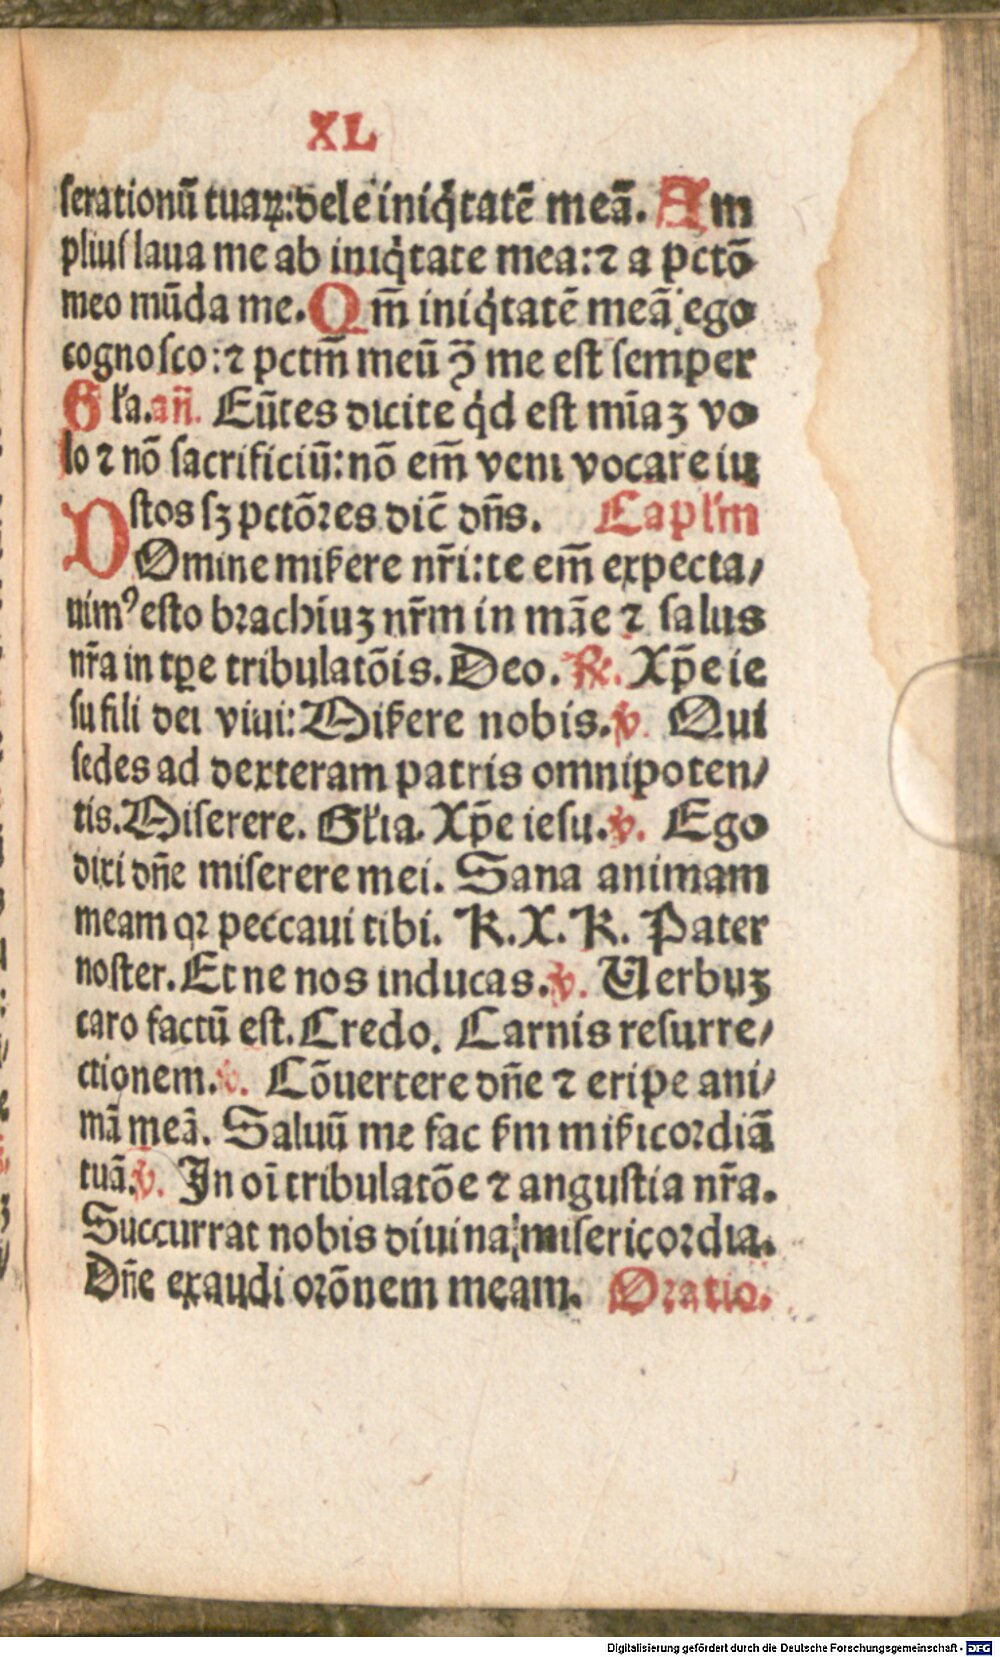 XL
serationū tuaꝝ: dele iniq̇tatē meā. Am
plius laua me ab iniq̇tate mea: ⁊ a pctō
meo mūda me. Qm̄ iniq̇tatē meā ego
cognosco: ⁊ pctm̄ meū ꝯ̄ me est semper
Gľa. an̄. Eūtes dicite q̇d est mīaꝫ vo
lo ⁊ nō sacrificiū: nō em̄ veni vocare iu
stos sꝫ pctōres dic̄ dn̄s. Capľm
Domine miẜere nr̄i: te em̄ expecta/
uimꝰ esto brachiuꝫ nr̄m in māe ⁊ salus
nr̄a in tꝑe tribulatōis. Deo. ℞. Xp̄e ie
su fili dei viui: Miẜere nobis. ℣. Qui
sedes ad dexteram patris omnipoten/
tis. Miserere. Gľia. Xp̄e iesu. ℣. Ego
dixi dn̄e miserere mei. Sana animam
meam qꝛ peccaui tibi. K. X. K. Pater
noster. Et ne nos inducas. ℣. Uerbuꝫ
caro factū est. Credo. Carnis resurre/
ctionem. ℣. Cōuertere dn̄e ⁊ eripe ani/
mā meā. Saluū me fac ẜm miẜicordiā
tuā. ℣. In oī tribulatōe ⁊ angustia nr̄a.
Succurrat nobis diuina misericordia.
Dn̄e exaudi orōnem meam. Oratio.
Digitalisierung gefördert durch die Deutsche Forschungsgemeinschaft - DFG